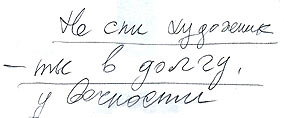 Не спи художник
– ты в долгу,
у вечности